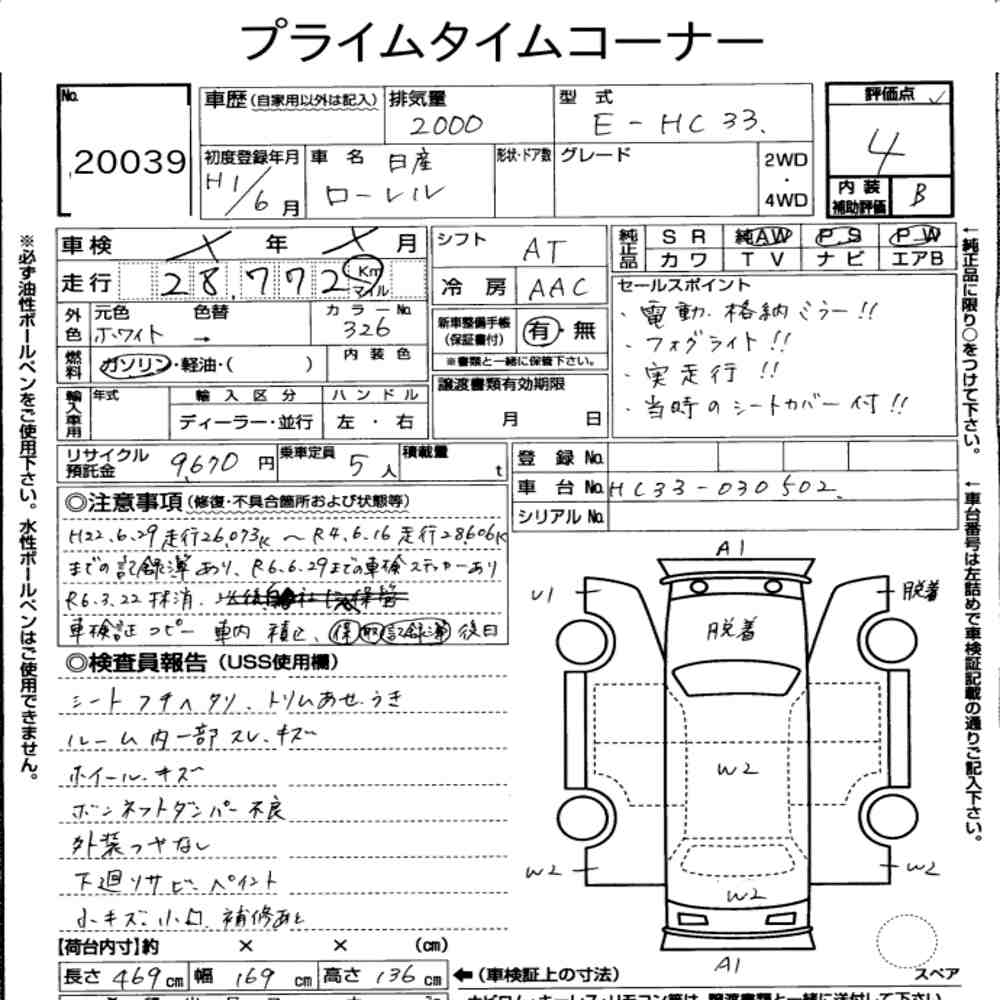 プライムタイムコーナー
No. 20039
車歴(自家用以外は記入) 排気量 2000
型式 E-HC33.
評価点 4
内装補助評価 B
初度登録年月 H1/6月
車名 日産 ローレル
形状・ドア数 グレード 2WD・4WD
※必ず油性ボールペンをご使用下さい。水性ボールペンはご使用できません。
車検 × 年 × 月
走行 28,772 Km マイル
外色 元色 ホワイト 色替 → カラーNo. 326
燃料 ガソリン・軽油・( ) 内装色
輸入車用 年式 輸入区分 ディーラー・並行 ハンドル 左・右
シフト AT
冷房 AAC
新車整備手帳(保証書付) 有・無
※書類と一緒に保管下さい。
譲渡書類有効期限 月 日
純正品 SR 純AW P.S P.W
カワ TV ナビ エアB
セールスポイント
・電動格納ミラー!!
・フォグライト!!
・実走行 !!
・当時のシートカバー付!!
←純正品に限り○をつけて下さい。
リサイクル預託金 9,670円 乗車定員 5人 積載量 t
登録No.
車台No. HC33-030502.
シリアルNo.
←車台番号は左詰めで車検証記載の通りご記入下さい。
◎注意事項(修復・不具合箇所および状態等)
H22.6.29走行26,073K 〜 R4.6.16走行28,606K
までの記録簿あり、R6.6.29までの車検ステッカーあり
R6.3.22抹消.
車検証コピー 車内積込、保取記録簿後日
◎検査員報告(USS使用欄)
シートフチヘタリ、トリムあせ.うき
ルーム内一部スレ.キズ
ホイール.キズ
ボンネットダンパー不良
外装つやなし
下廻りサビ.ペイント
小キズ.小凹.補修あと
A1
U1 脱着
脱着
W2
W2 W2
W2
A1
スペア
【荷台内寸】約 × × (cm)
長さ 469cm 幅 169cm 高さ 136cm ←(車検証上の寸法)